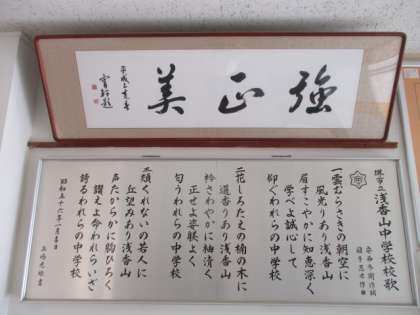 強正美
平成三年春
堺市立
浅香山中学校校歌
一雲むらさきの朝空に
風光りあり浅香山
眉すこやかに知恵深く
学べよ誠心して
仰ぐわれらの中学校
二花しろたえの楠の木に
道香りあり浅香山
衿さわやかに袖清く
正せよ姿躾よく
匂うわれらの中学校
三頬くれないの若人に
丘望みあり浅香山
声たからかに胸ひろく
讃えよ命われらいざ
誇るわれらの中学校
昭和五十六年一月吉日